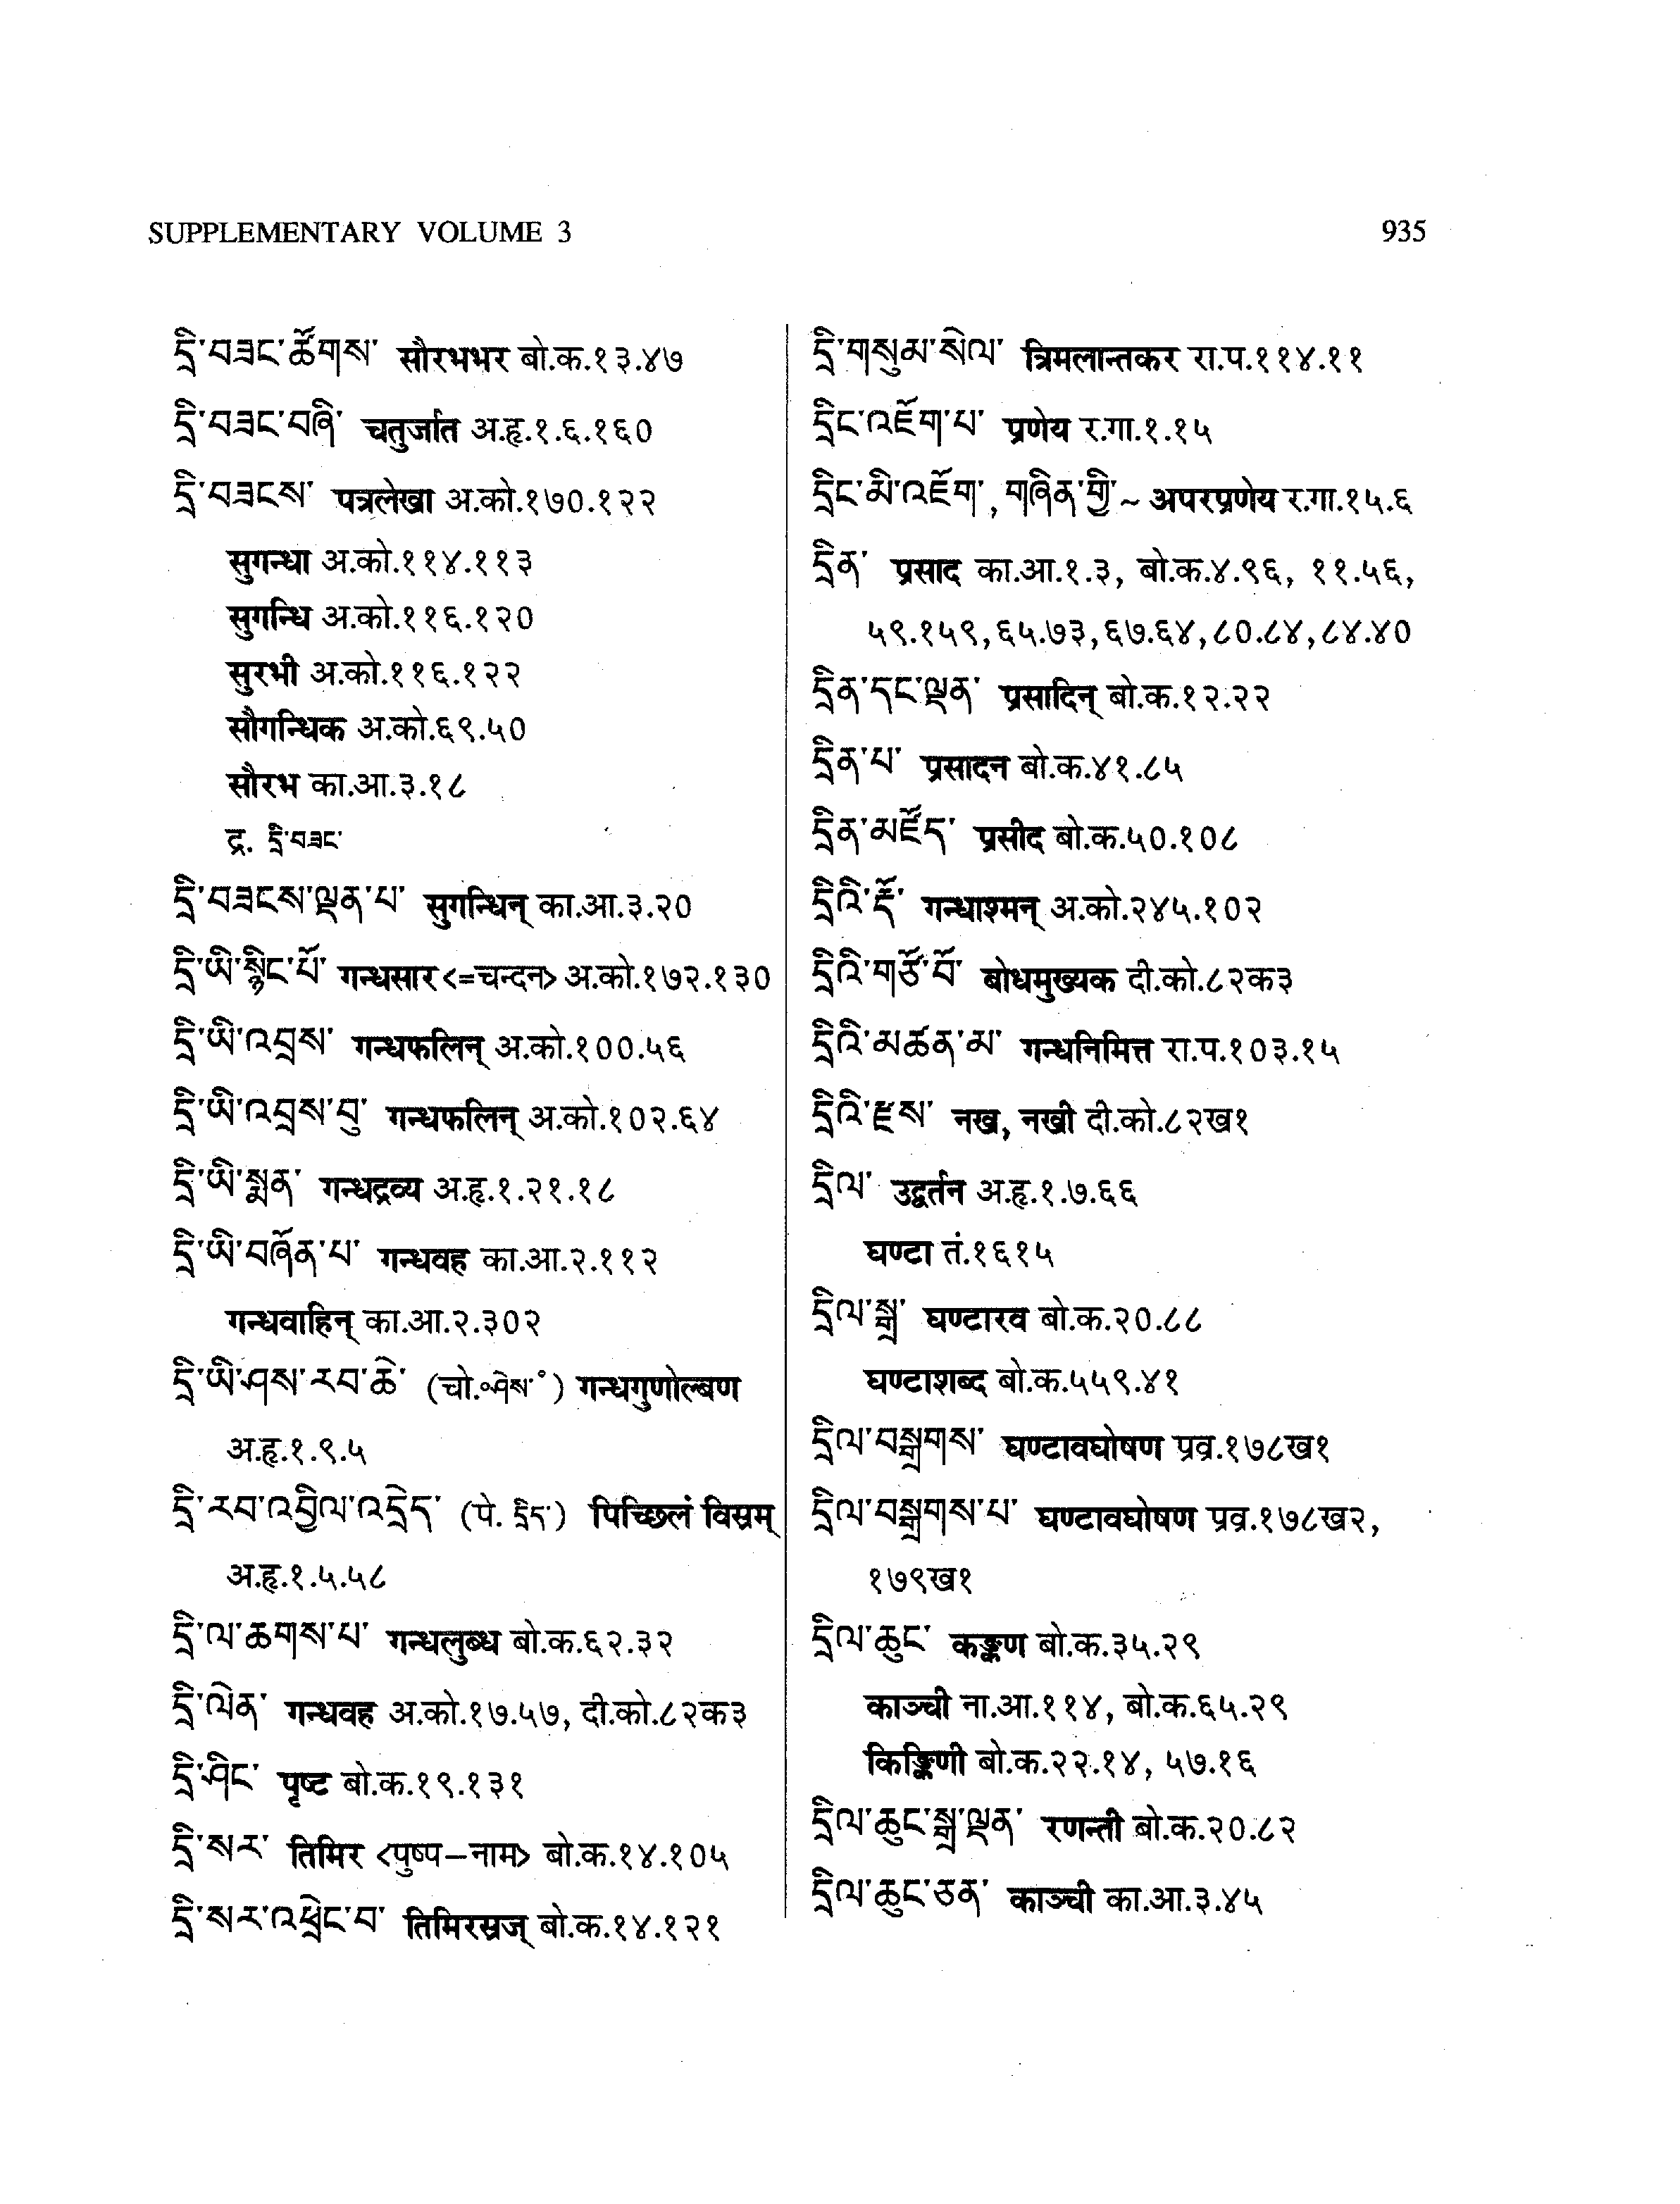 SUPPLEMENTARY VOLUME 3 935
དྲི་བཟང་ཚོགས་ सौरभभर बो.क.१३.४७
དྲི་བཟང་བཞི་ चतुर्जात अ.हृ.१.६.१६०
དྲི་བཟངས་ पत्रलेखा अ.को.१७०.१२२
सुगन्धा अ.को.११४.११३
सुगन्धि अ.को.११६.१२०
सुरभी अ.को.११६.१२२
सौगन्धिक अ.को.६९.५०
सौरभ का.आ.३.१८
द्र. དྲི་བཟང་
དྲི་བཟངས་ལྡན་པ་ सुगन्धिन् का.आ.३.२०
དྲི་ཡི་སྙིང་པོ་ गन्धसार <=चन्दन> अ.को.१७२.१३०
དྲི་ཡི་འབྲས་ गन्धफलिन् अ.को.१००.५६
དྲི་ཡི་འབྲས་བུ་ गन्धफलिन् अ.को.१०२.६४
དྲི་ཡི་སྨན་ गन्धद्रव्य अ.हृ.१.२१.१८
དྲི་ཡི་བཞོན་པ་ गन्धवह का.आ.२.११२
गन्धवाहिन् का.आ.२.३०२
དྲི་ཡི་ཤས་རབ་ཆེ་ (चो.॰ཤེས་॰) गन्धगुणोल्बण
अ.हृ.१.९.५
དྲི་རབ་འབྱིལ་འདྲེད་ (पे. དྲིད་) पिच्छिलं विस्रम्
अ.हृ.१.५.५८
དྲི་ལ་ཆགས་པ་ गन्धलुब्ध बो.क.६२.३२
དྲི་ལེན་ गन्धवह अ.को.१७.५७, दी.को.८२क३
དྲི་ཤིང་ पृष्ट बो.क.१९.१३१
དྲི་སར་ तिमिर <पुष्प–नाम> बो.क.१४.१०५
དྲི་སར་འཕྲེང་བ་ तिमिरस्रज् बो.क.१४.१२१
དྲི་གསུམ་སེལ་ त्रिमलान्तकर रा.प.११४.११
དྲིང་འཇོག་པ་ प्रणेय र.गा.१.१५
དྲིང་མི་འཇོག་, གཞིན་གྱི་~ अपरप्रणेय र.गा.१५.६
དྲིན་ प्रसाद का.आ.१.३, बो.क.४.९६, ११.५६,
५९.१५९,६५.७३,६७.६४,८०.८४,८४.४०
དྲིན་དང་ལྡན་ प्रसादिन् बो.क.१२.२२
དྲིན་པ་ प्रसादन बो.क.४१.८५
དྲིན་མཛོད་ प्रसीद बो.क.५०.१०८
དྲིའི་རྡོ་ गन्धाश्मन् अ.को.२४५.१०२
དྲིའི་གཙོ་བོ་ बोधमुख्यक दी.को.८२क३
དྲིའི་མཚན་མ་ गन्धनिमित्त रा.प.१०३.१५
དྲིའི་རྫས་ नख, नखी दी.को.८२ख१
དྲིལ་ उद्वर्तन अ.हृ.१.७.६६
घण्टा तं.१६१५
དྲིལ་སྒྲ་ घण्टारव बो.क.२०.८८
घण्टाशब्द बो.क.५५९.४१
དྲིལ་བསྒྲགས་ घण्टावघोषण प्रव्र.१७८ख१
དྲིལ་བསྒྲགས་པ་ घण्टावघोषण प्रव्र.१७८ख२,
१७९ख१
དྲིལ་ཆུང་ कङ्कण बो.क.३५.२९
काञ्ची ना.आ.११४, बो.क.६५.२९
किङ्किणी बो.क.२२.१४, ५७.१६
དྲིལ་ཆུང་སྒྲ་ལྡན་ रणन्ती बो.क.२०.८२
དྲིལ་ཆུང་ཅན་ काञ्ची का.आ.३.४५